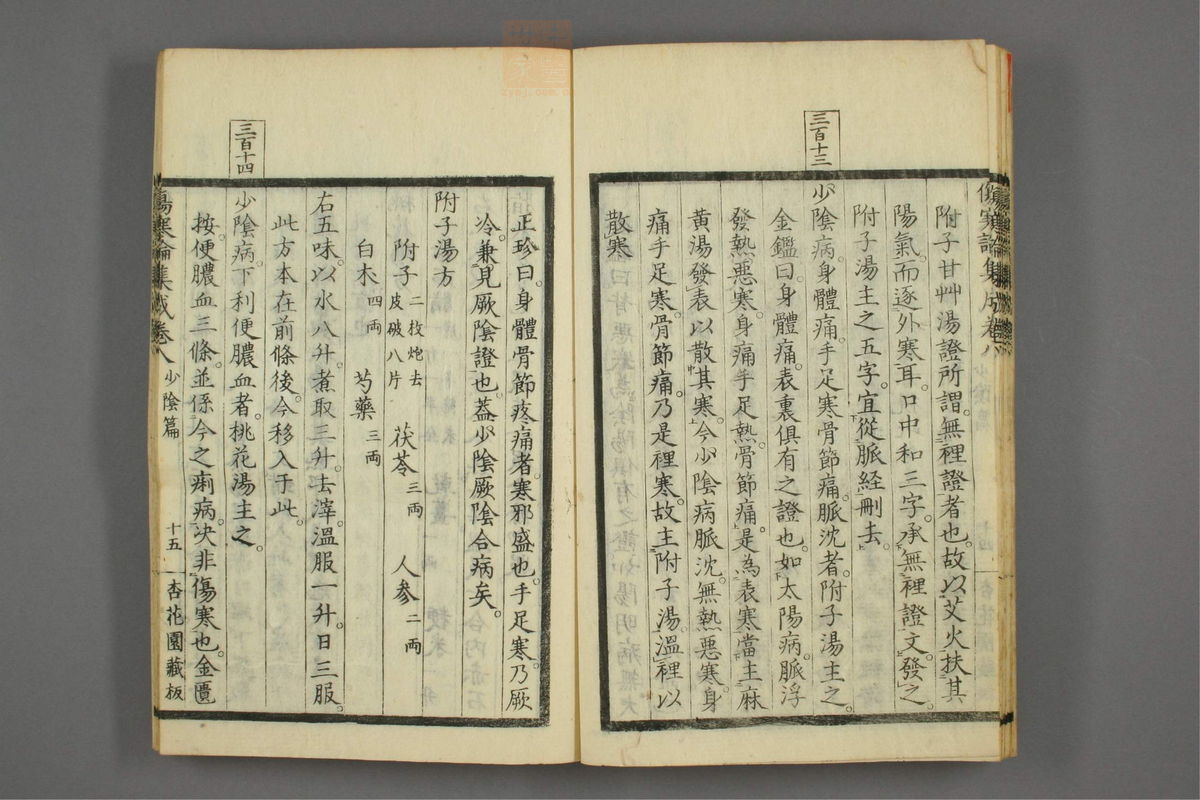 傷寒論集成卷八
附子甘艸湯證所謂無裡證者也。故以艾火扶其
陽氣。而逐外寒耳。口中和三字。承無裡證文發之
附子湯主之五字。宜從脈經刪去。
三百十三
少陰病。身體痛。手足寒。骨節痛。脈沈者。附子湯主之。
金鑑曰。身體痛。表裏俱有之證也。如太陽病。脈浮
發熱。惡寒。身痛。手足熱。骨節痛。是為表寒。當主麻
黃湯發表以散其寒。今少陰病。脈沈。無熱。惡寒。身
痛。手足寒。骨節痛。乃是裡寒。故主附子湯。溫裡以
散寒
正珍曰。身體骨節疼痛者。寒邪盛也。手足寒。乃厥
冷。兼見厥陰證也。蓋少陰厥陰合病矣。
附子湯方
附子二枚炮去皮破八片 茯苓三兩 人參二兩
白朮四兩 芍藥三兩
右五味。以水八升。煮取三升。去滓。溫服一升。日三服。
此方本在前條後。今移入于此。
三百十四
少陰病。下利便膿血者。桃花湯主之。
按便膿血三條。並係今之痢病。决非傷寒也。金匱
傷寒論集成卷八 少陰篇 十五 杏花園藏板